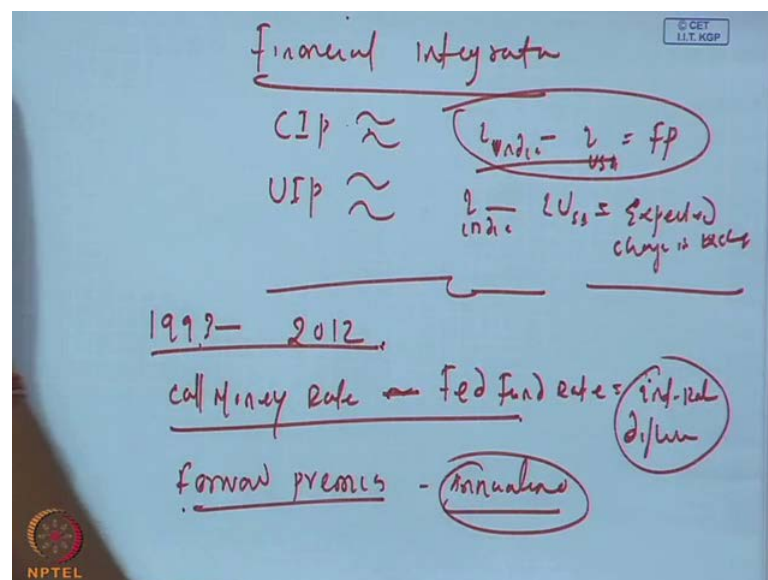 © CET
I.I.T. KGP
Financial Integration
CIP ≈ i India - i USA = FP
UIP ≈ i India - i USA = Expected
change in
1993 - 2012
Call Money Rate - Fed Fund Rate =
Forward premia - 
NPTEL